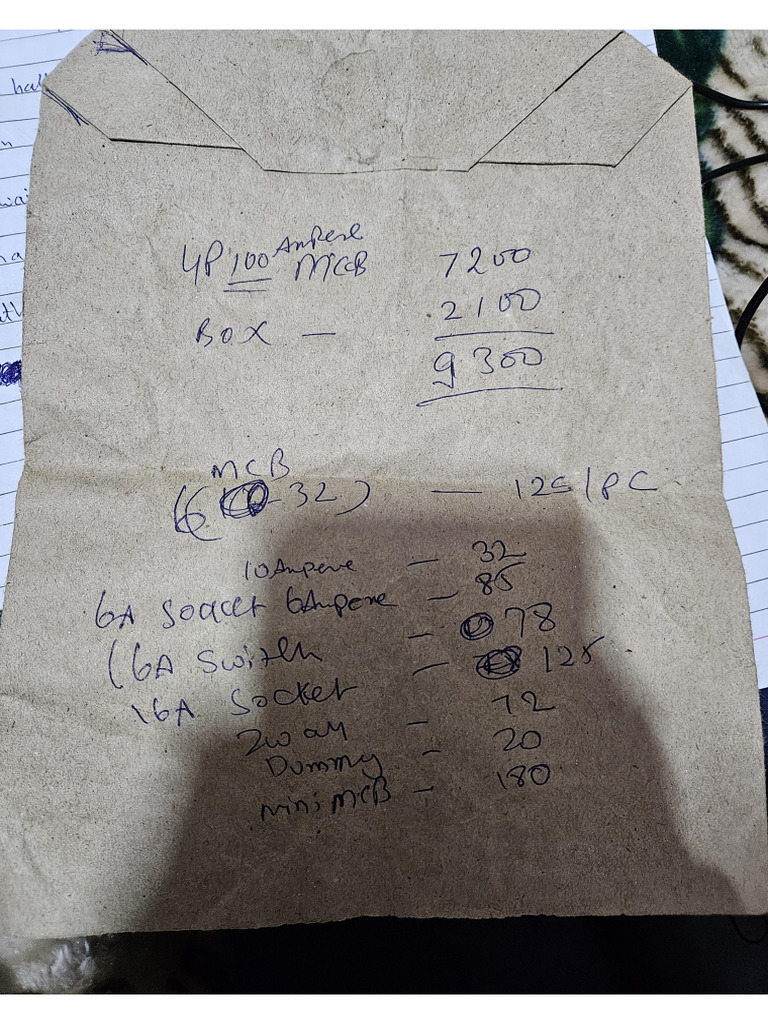 4P 100 Ampere MCB 7200
Box — 2100
9300
MCB
(6 - 32) — 125/PC
10 Ampere — 32
6A Soacet 6Ampere — 85
16A Switch — 78
16A Socket — 125
2way — 72
Dummy — 20
mini MCB — 180
hall